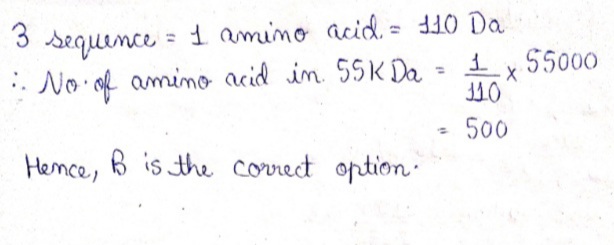 3 sequence = 1 amino acid = 110 Da
∴ No. of amino acid in 55K Da = 1/110 × 55000
= 500
Hence, B is the correct option.